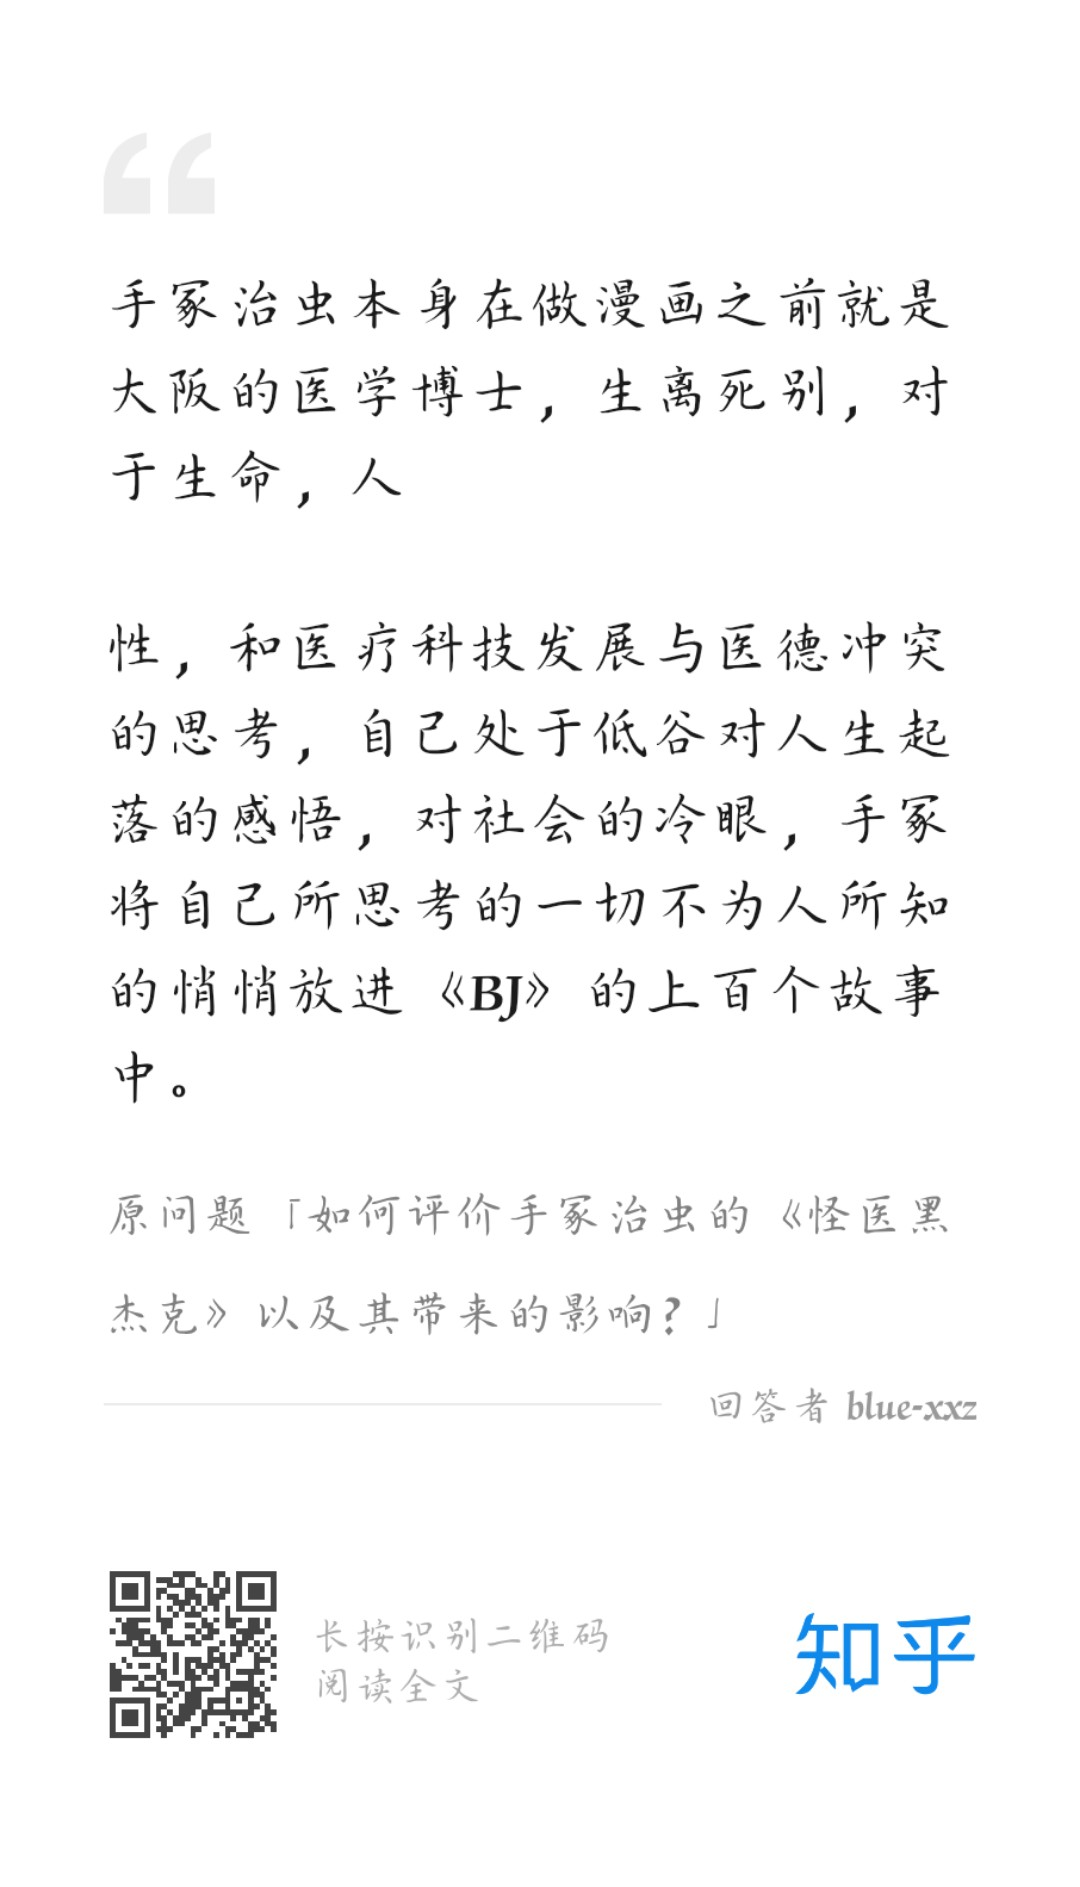 手冢治虫本身在做漫画之前就是
大阪的医学博士，生离死别，对
于生命，人
性，和医疗科技发展与医德冲突
的思考，自己处于低谷对人生起
落的感悟，对社会的冷眼，手冢
将自己所思考的一切不为人所知
的悄悄放进《BJ》的上百个故事
中。
原问题「如何评价手冢治虫的《怪医黑
杰克》以及其带来的影响？」
回答者 blue-xxz
长按识别二维码
阅读全文
知乎